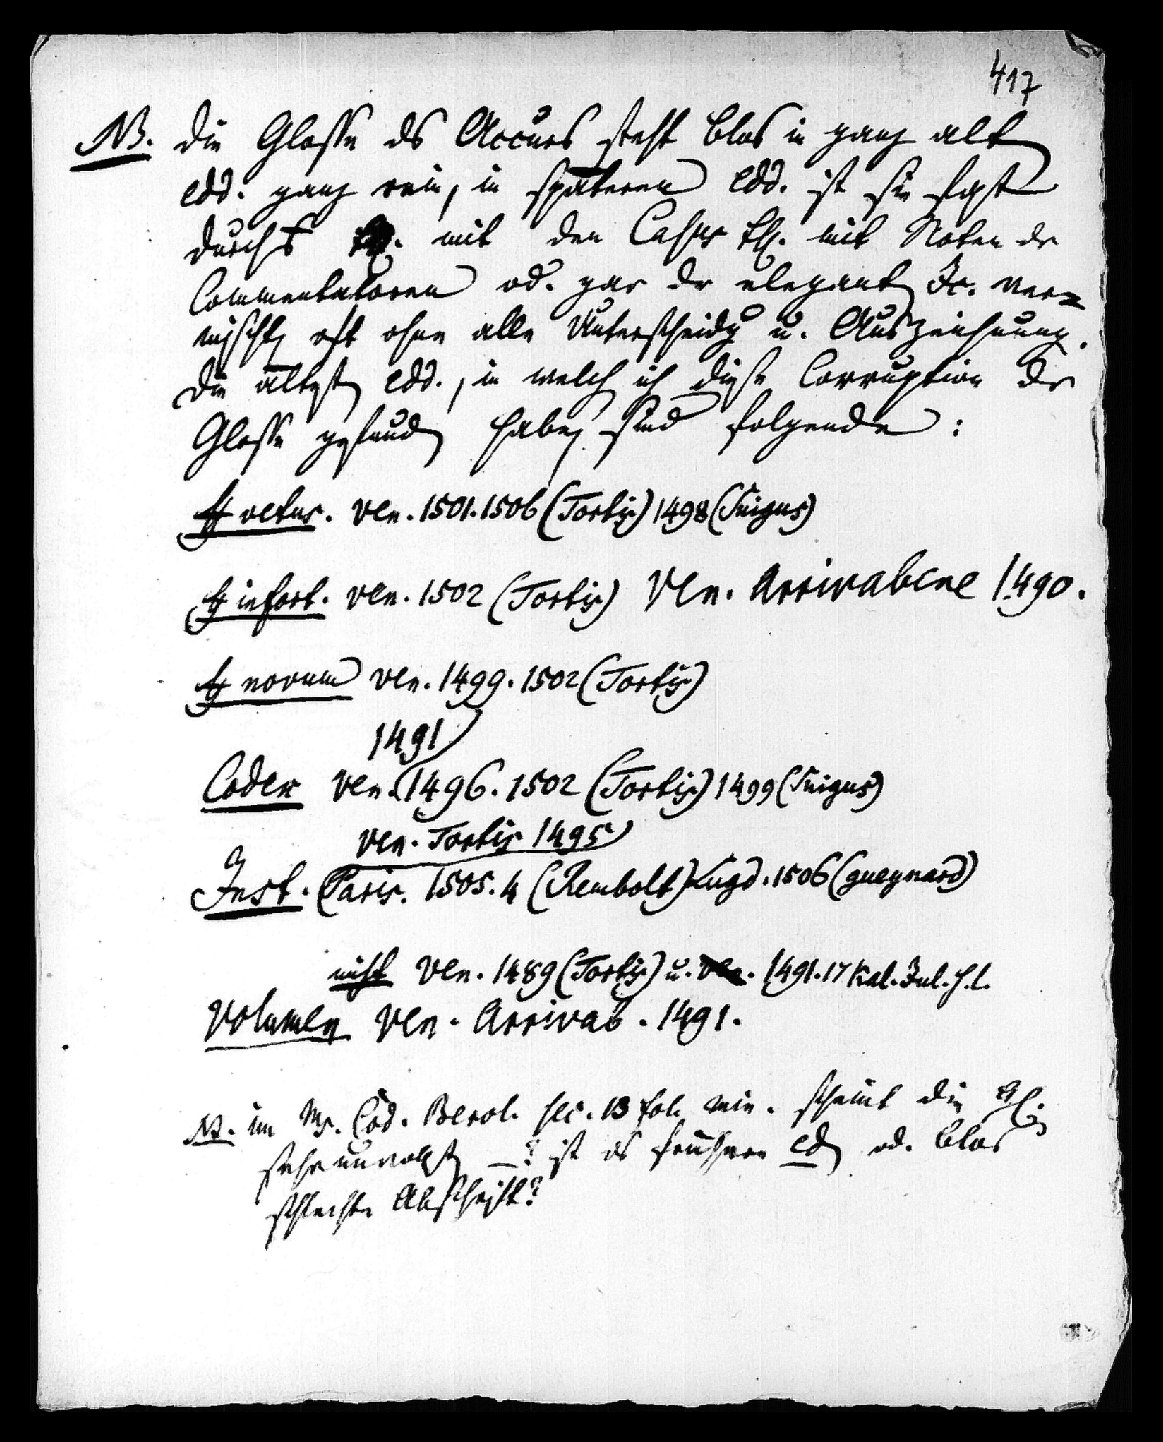 417
NB. die Glosse ds Accurs steht blos in ganz alt
edd. ganz rein, in späteren edd. ist sie fast
durch mit den Casus mit Noten dr
Commentatoren od. gar dr elegant Jc. ver=
mischt, oft ohne alle Untersheidg u. Auszeichnung.
die ältest edd., in welch ich diese Corruption dr
Glosse gefund habe, sind folgende:
ff vetus. Ven. 1501. 1506 (Tortis) 1498 (Suigus)
ff infort. Ven. 1502 (Tortis) Ven. Arrivabene 1490.
ff novum Ven. 1499. 1502 (Tortis)
1491
Codex Ven. 1496. 1502 (Tortis) 1499 (Suigus)
Ven. Tortis 1495
Inst. Paris. 1505. 4 (Rembolt) Lugd. 1506 (gueynard)
nicht Ven. 1489 (Tortis) u. Ven. 1491. 17 Kal. Jul. s. l.
Volumen Ven. Arrivab. 1491.
NB. im Ms. Cod. Berol. sec. 13 fol. min. scheint die Gl.
sehr unvollst — ? ist es frühere ed od. blos
schlechte Abschrift?